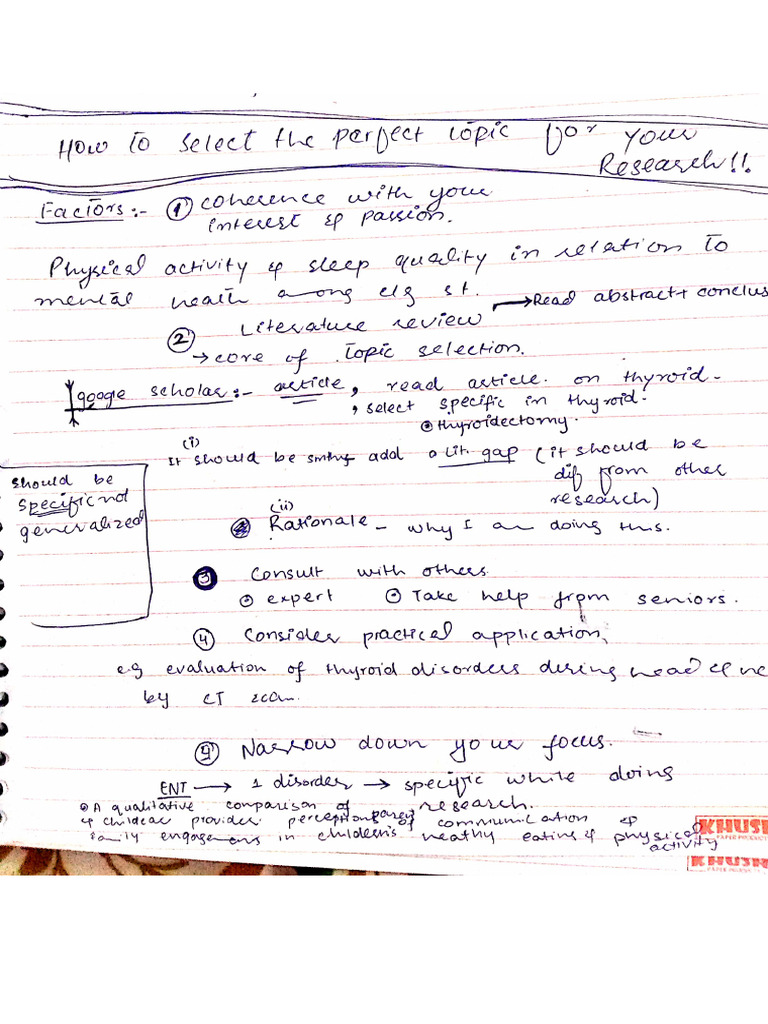 How to select the perfect topic for your
Research!!
Factors :- ① coherence with your
interest & passion.
Physical activity & sleep quality in relation to
mental health among clg st. → Read abstract + conclus
② Literature review
→ core of topic selection.
google scholar :- article, read article on thyroid -
, select specific in thyroid.
⊙ thyroidectomy.
(i)
It should be smthng add a lit. gap (it should be
dif from other
research)
should be
specific not
generalized
(ii)
Rationale - why I am doing this.
③ Consult with others.
⊙ expert ⊙ Take help from seniors.
④ Consider practical application,
e.g evaluation of thyroid disorders during head & nec
by CT scan.
⑤ Narrow down your focus.
ENT → 1 disorder → specific while doing
research.
⊙ A qualitative comparison of parent
& childcare provider perceptions of communication &
family engagement in children's healthy eating & physical
activity
KHUSH
PAPER PRODUCT
KHUSH
PAPER PRODUCT